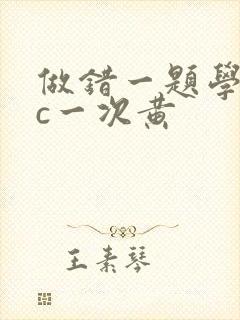 做錯一題學
c一次黃
王素琴